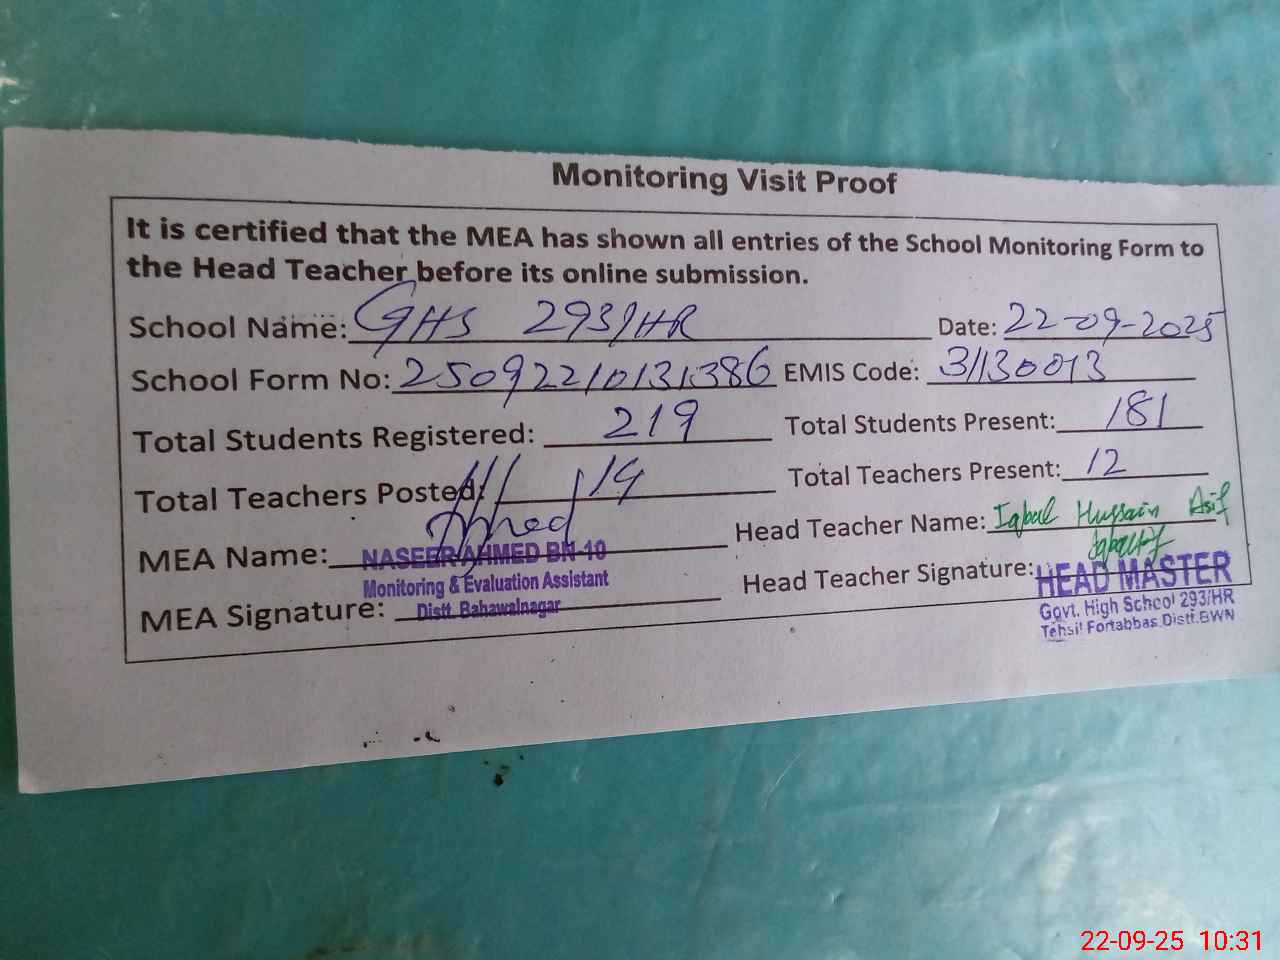 Monitoring Visit Proof
It is certified that the MEA has shown all entries of the School Monitoring Form to
the Head Teacher before its online submission.
School Name: GHS 293/HR Date: 22-09-2025
School Form No: 25092210131386 EMIS Code: 31130013
Total Students Registered: 219 Total Students Present: 181
Total Teachers Posted: 14 Total Teachers Present: 12
MEA Name: NASEER AHMED BN-10 Head Teacher Name: Iqbal Hussain Asif
Monitoring & Evaluation Assistant Head Teacher Signature: HEAD MASTER
MEA Signature: Distt. Bahawalnagar Govt. High School 293/HR
Tehsil Fortabbas Distt.BWN
22-09-25 10:31